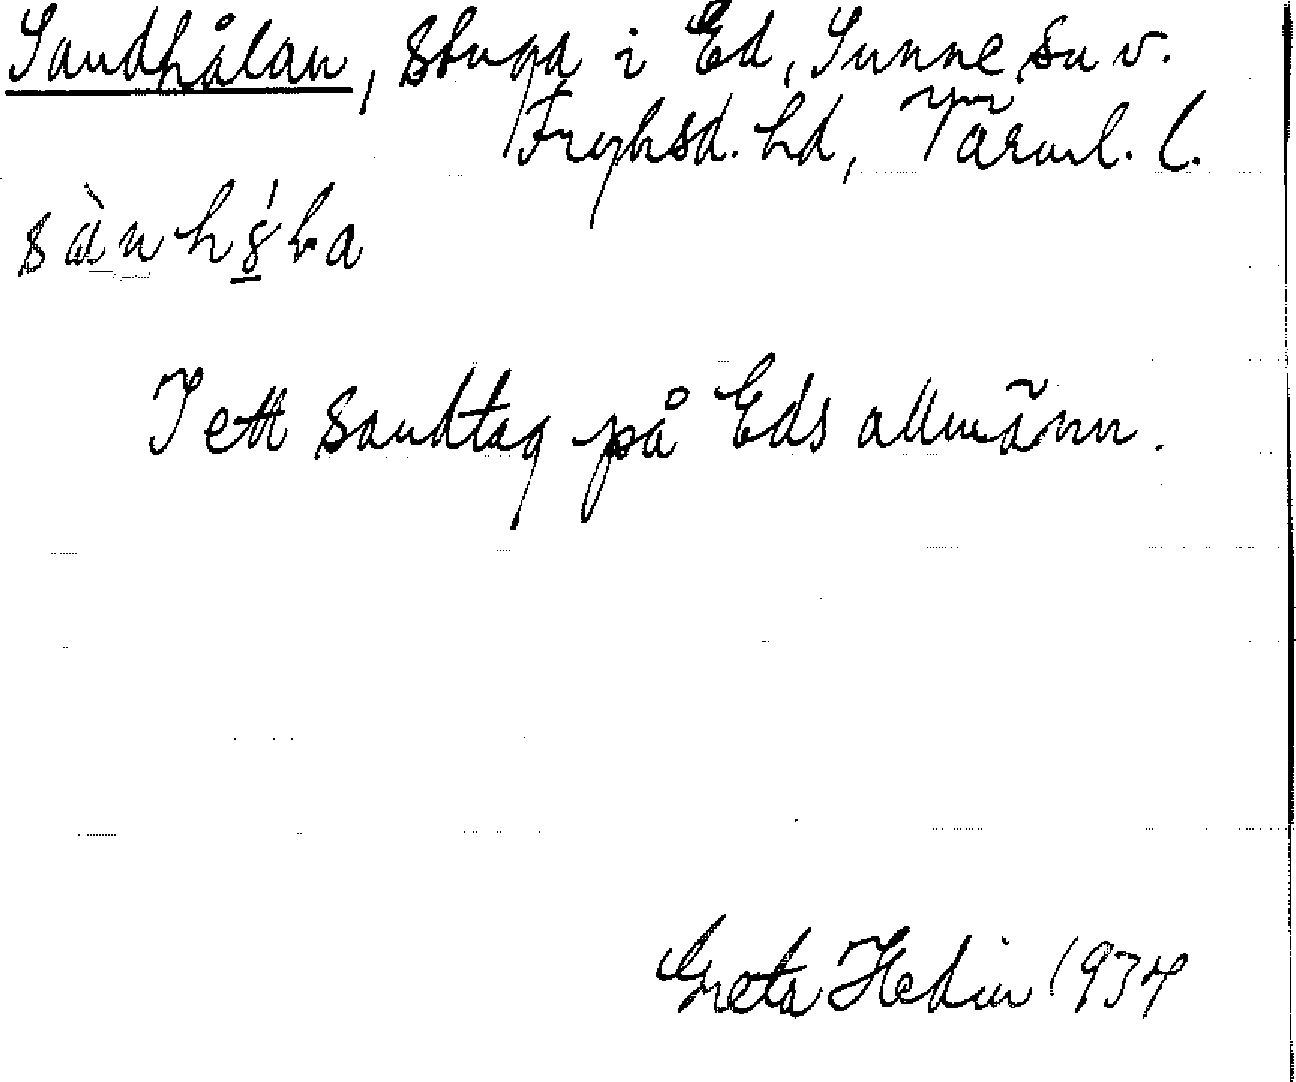 Sandhålan, stuga i Ed, Sunne sn v.
Fryksd. hd, Värml. l.
I ett sandtag på Eds allmänn.
Greta Hedin 1934